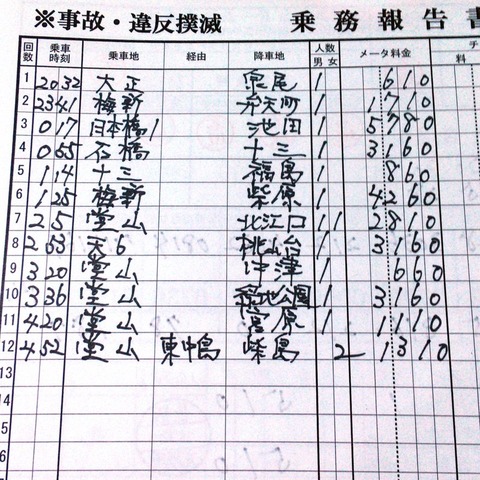 ※事故・違反撲滅 乗務報告書
回数 乗車時刻 乗車地 経由 降車地 人数 男 女 メータ料金 チ 料
1 2032 大正 泉尾 1 610
2 2341 梅新 弁天町 1 1710
3 017 日本橋1 池田 1 5780
4 055 石橋 十三 1 3160
5 114 十三 福島 1 860
6 125 梅新 柴原 1 4260
7 2 5 堂山 北江口 1 1 2810
8 2 53 天6 桃山台 1 3160
9 3 20 堂山 中津 1 660
10 3 36 堂山 緑地公園 1 3160
11 4 20 堂山 宮原 1 1110
12 4 52 堂山 東中島 柴島 2 1310
13
14
15
6